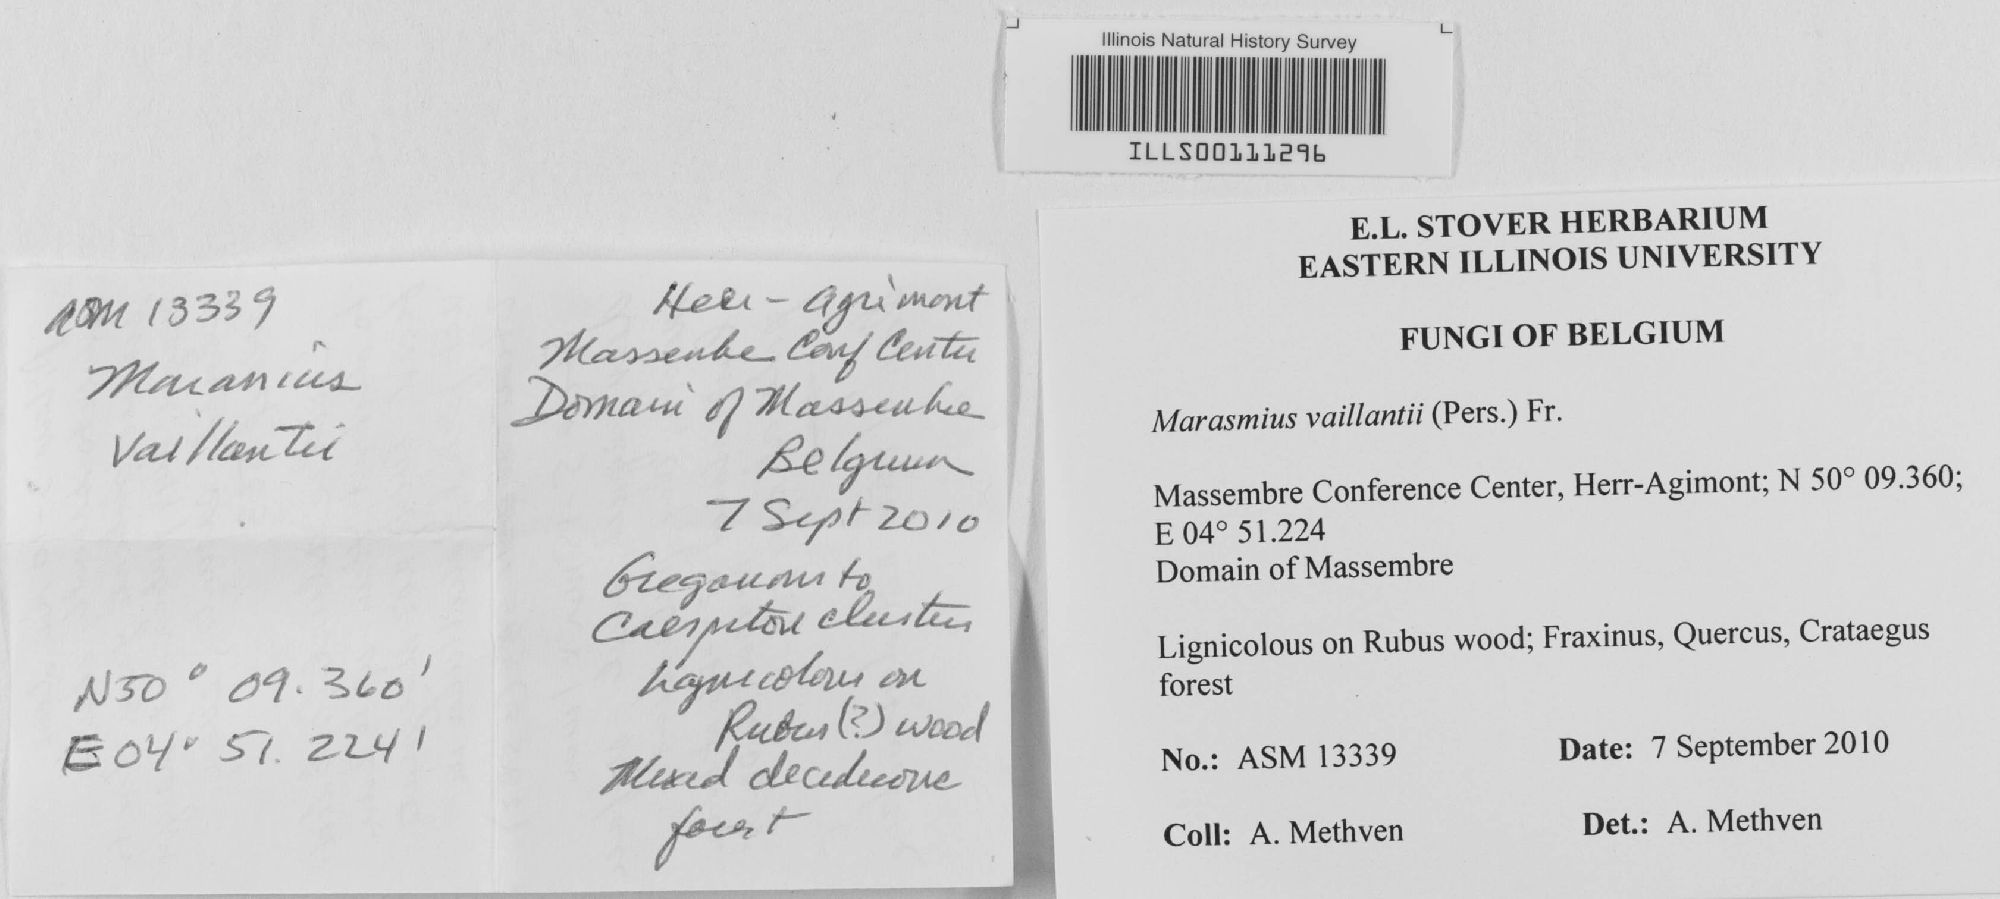 Illinois Natural History Survey
ILLS00111296
ASM 13339
Marasmius
vaillantii
N50° 09.360'
E04° 51.224'
Heer-Agrimont
Massembre Conf Center
Domain of Massembre
Belgium
7 Sept 2010
Gregarious to
Caespitose clusters
Lignicolous on
Rubus (?) wood
Mixed deciduous
forest
E.L. STOVER HERBARIUM
EASTERN ILLINOIS UNIVERSITY
FUNGI OF BELGIUM
Marasmius vaillantii (Pers.) Fr.
Massembre Conference Center, Herr-Agimont; N 50° 09.360;
E 04° 51.224
Domain of Massembre
Lignicolous on Rubus wood; Fraxinus, Quercus, Crataegus
forest
No.: ASM 13339 Date: 7 September 2010
Coll: A. Methven Det.: A. Methven